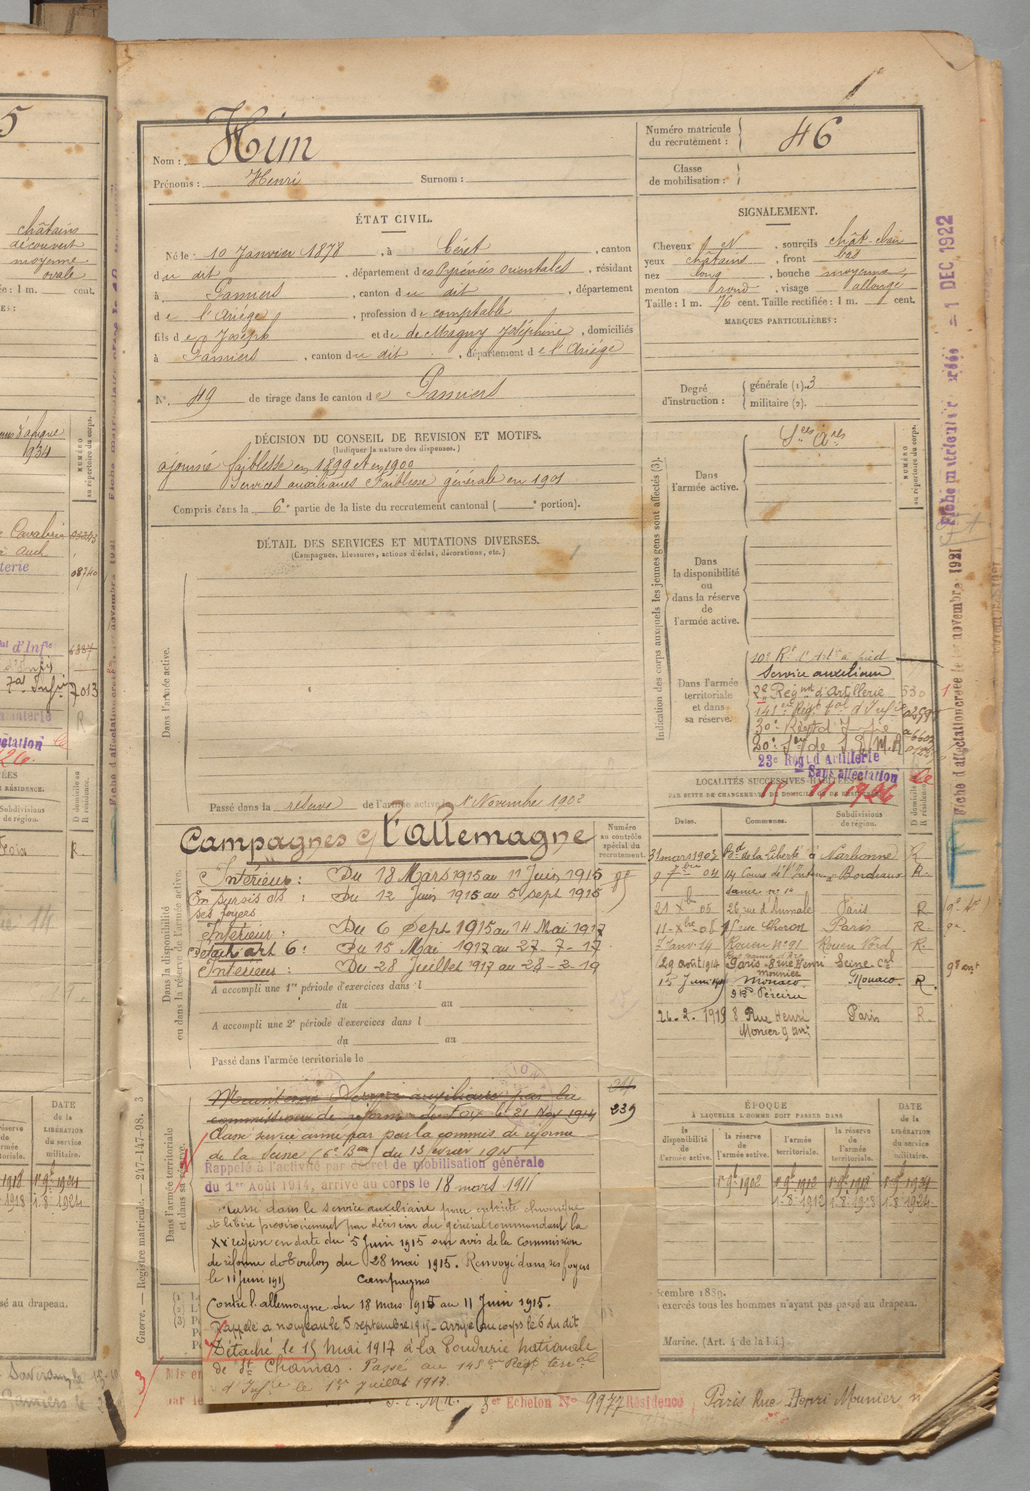 Nom : Him
Prénoms : Henri Surnom :
Numéro matricule
du recrutement : 46
Classe
de mobilisation :
ÉTAT CIVIL.
Né le : 10 Janvier 1878, à Céret, canton
du dit, département des Pyrénées orientales, résidant
à Pamiers, canton du dit, département
de l'Ariège, profession de comptable
fils de Joseph et de de Magny Joséphine, domiciliés
à Pamiers, canton du dit, département de l'Ariège
N° 49 de tirage dans le canton de Pamiers
SIGNALEMENT.
Cheveux N, sourcils chât-clair
yeux châtains, front bas
nez long, bouche moyenne
menton rond, visage allongé
Taille : 1 m. 76 cent. Taille rectifiée : 1 m. cent.
MARQUES PARTICULIÈRES :
Degré
d'instruction :
générale (1). 3
militaire (2).
DÉCISION DU CONSEIL DE REVISION ET MOTIFS.
(Indiquer la nature des dispenses.)
ajourné faiblesse en 1899 et en 1900
Services auxiliaires Faiblesse générale en 1901
Compris dans la 6e partie de la liste du recrutement cantonal ( e portion).
DÉTAIL DES SERVICES ET MUTATIONS DIVERSES.
(Campagnes, blessures, actions d'éclat, décorations, etc.)
Dans l'armée active.
Passé dans la réserve de l'armée active le 1 Novembre 1902
Indication des corps auxquels les jeunes gens sont affectés (3).
NUMÉRO
au répertoire du corps.
Dans
l'armée active.
Dans
la disponibilité
ou
dans la réserve
de
l'armée active.
Dans l'armée
territoriale
et dans
sa réserve.
Service auxiliaire
2e Régnt d'Artillerie 530
23e Régt d'Artillerie
Sans affectation
15 11 1926
LOCALITÉS SUCCESSIVES HABITÉES
PAR SUITE DE CHANGEMENT DE DOMICILE OU DE RÉSIDENCE.
Dates. Communes. Subdivisions
de région.
D domicile ou
R résidence.
31 mars 1902 Bd de la Liberté à Narbonne R
9 7bre 04 14 Cours de l'Intend Bordeaux R.
21 Xb 05 26 rue d'Aumale Paris R
11-Xbre 06 rue Choron Paris R.
7 Janv 14 Rouen n° 91 Rouen Nord R.
29 août 1914 Paris Seine Cal
Monaco Monaco R.
9 bis Péreire
26-2-1919 8 Rue Henri Paris R.
Monier 9 arr
Campagnes c/ l'allemagne
Numéro
au contrôle
spécial du
recrutement.
Intérieur : Du 18 Mars 1915 au 11 Juin 1915
En sursis ds : Du 12 Juin 1915 au 5 sept 1915
ses foyers
Intérieur : Du 6 Sept 1915 au 14 Mai 1917
Détach art 6 : Du 15 Mai 1917 au 27-7-17
Intérieur : Du 28 Juillet 1917 au 28-2-19
Dans la disponibilité
ou dans la réserve de l'armée active.
A accompli une 1re période d'exercices dans l
du au
A accompli une 2e période d'exercices dans l
du au
Passé dans l'armée territoriale le
Dans l'armée territoriale
et dans sa réserve.
Maintenu Service auxiliaire par la
commission de réforme de Foix le 21 Nov 1914
239
Classé service armé par par la commis de réforme
de la Seine (6e Bau) du 13 février 1915
Rappelé à l'activité par décret de mobilisation générale
du 1er Août 1914, arrivé au corps le 18 mars 1915
Classé dans le service auxiliaire pour entérite chronique
et libéré provisoirement par décision du général commandant la
XVe région en date du 5 Juin 1915 sur avis de la commission
de réforme de Toulon du 28 mai 1915. Renvoyé dans ses foyers
le 11 Juin 1915 Campagnes
Contre l'allemagne du 18 mars 1915 au 11 Juin 1915.
Rappelé à nouveau le 5 septembre 1915 - arrivé au corps le 6 du dit
Détaché le 15 Mai 1917 à la Poudrerie Nationale
de St Chamas. Passé au 145e Régt terral
d'Infie le 1er Juillet 1917.
ÉPOQUE
À LAQUELLE L'HOMME DOIT PASSER DANS
la
disponibilité
de
l'armée active.
la réserve
de
l'armée active.
l'armée
territoriale.
la réserve
de l'armée
territoriale.
DATE
de la
LIBÉRATION
du service
militaire.
1r 9b 1902 1r 9b 1912 1r 9b 1918 1r 9b 1924
1.8.1912 1.8.1918 1.8.1924
exercés tous les hommes n'ayant pas passé au drapeau.
Marine. (Art. 4 de la loi.)
Echelon No 9977 Résidence Paris Rue Henri Mounier n
Guerre. — Registre matricule. — 247-147-98. 3
Fiche matricule créée = 1 DEC 1922
Fiche d'affectation créée le 1er novembre 1921
châtains
découvert
moyenne
ovale
1934
08740
7013
DATE
de la
LIBÉRATION
du service
militaire.